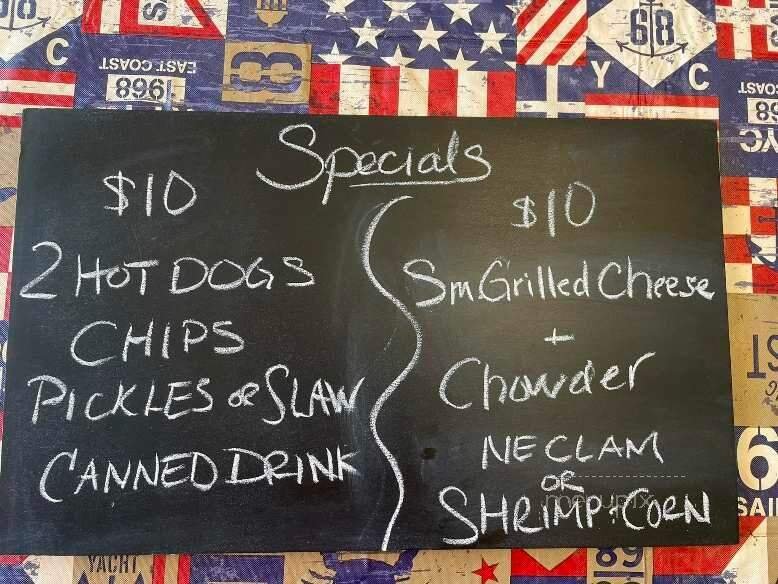 Specials
$10
2 HOT DOGS
CHIPS
PICKLES OR SLAW
CANNED DRINK
$10
Sm.Grilled Cheese
+
Chowder
NE CLAM
OR
SHRIMP+CORN
EAST COAST
1968
68
Y C
C
YACHT
89
SAI